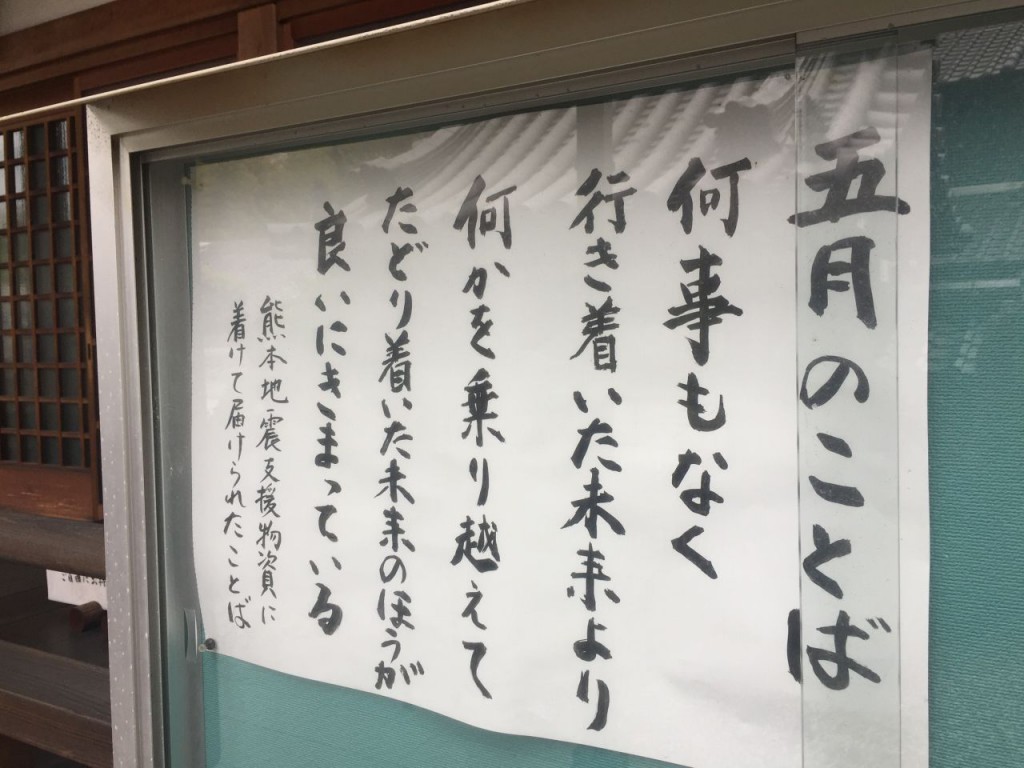 五月のことば
何事もなく
行き着いた未来より
何かを乗り越えて
たどり着いた未来のほうが
良いにきまっている
熊本地震支援物資に
着けて届けられたことば